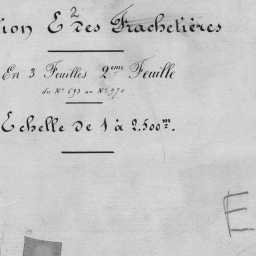 ion E2 des Frachetières
En 3 Feuilles 2eme Feuille
du No 693 au No 970
Echelle de 1 à 2.500m.
E